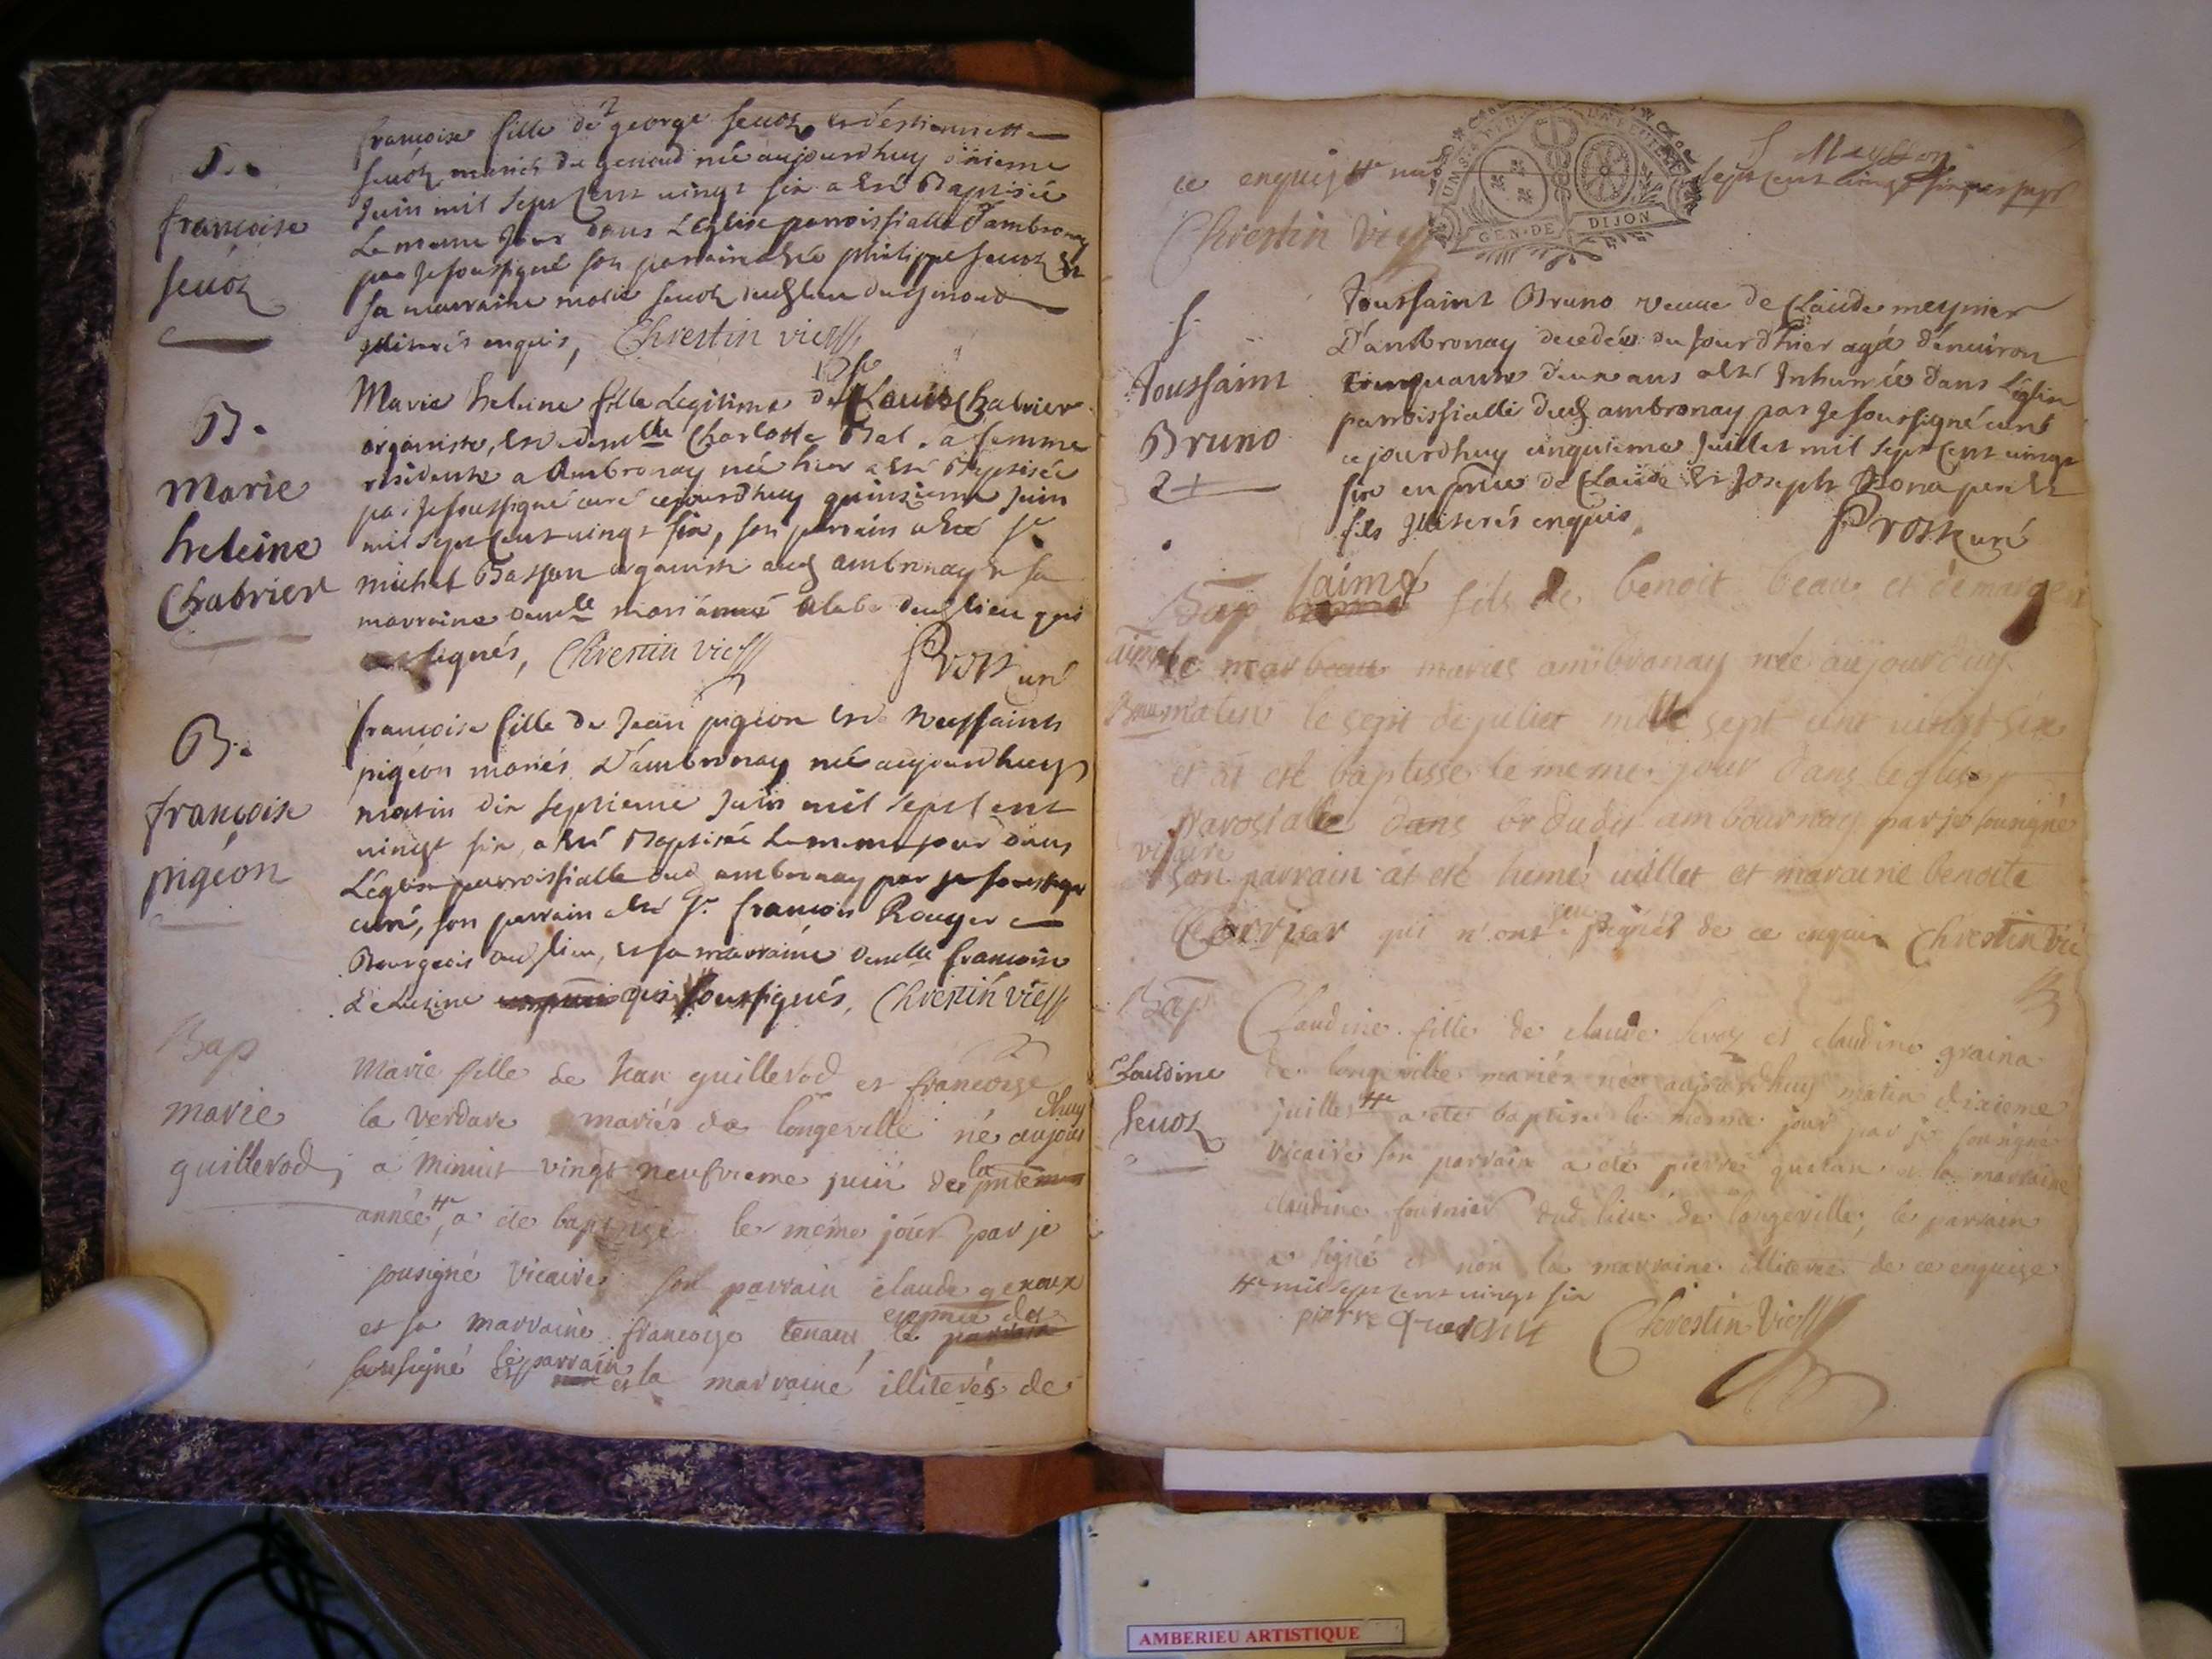 B.
françoise
seuoz
françoise fille de george seuoz et d'estiennette
seuoz mariés du genoud née aujourdhuy onzieme
Juin mil sept cent vingt six a esté Baptisée
Le meme Jour dans L'Eglise parroissialle d'ambronay
par Je soussigné son parrain a esté philippe seuoz et
sa marraine marie seuoz dud lieu du genoud
illiterés enquis, Chrestin vic
B.
Marie
heleine
Chabrier
Marie heleine fille Legitime de Sr Louis Chabrier
organiste, et de demlle Charlotte Bal sa femme
residents a Ambronay née hier a esté Baptisée
par Je soussigné curé cejourdhuy quinzieme Juin
mil sept cent vingt six, son parrain a esté Sr
michel Basson organiste aud ambronay et sa
marraine demlle dud lieu qui
signés, Chrestin vic
curé
B.
françoise
pigéon
françoise fille de Jean pigéon et de toussaints
pigéon mariés D'ambronay née aujourdhuy
matin dix septieme Juin mil sept cent
vingt six, a esté Baptisée Le meme jour dans
L'église parroissialle dud ambronay par je soussigné
curé, son parrain a esté Sr françois Rouger
Bourgeois dud lieu, et sa marraine demlle françoise
qui soussignés, Chrestin vic
Bap
marie
guillerod
Marie fille de Jean guillerod et francoise
la verdare mariés de longeville né aujour
dhuy
a Minuit vingt neufvieme juin de la
année, a été baptisée le méme jour par je
sousigné vicaire son parrain claude genoux
et sa marraine francoise tenand, le parrain
en pnce de
sousigné le parrain et la marraine illiterés de
ce enquis
Chrestin vic
GEN. DE DIJON
S.
toussaint
Bruno
2+
toussaint Bruno veuve de Claude meynier
D'ambronay decedée du Jour d'hier agée d'environ
cinquante deux ans a esté Inhumée dans l'église
parroissialle dud ambronay par Je soussigné curé
cejourdhuy cinquieme Juillet mil sept cent vingt
six en pnce de Claude et Joseph Bona pere et
fils illiterés enquis, curé
Bap aimé fils de benoit beau et de marge
mariés ambronay née aujourduy
matin le sept de juliet mille sept cent vingt six
et at esté baptisse le meme jour dans leglise
parosialle dudit ambournay par je sousigné
vicaire
son parrain at été humé uillet et maraine benoite
qui n'ont seu signés de ce enquis Chrestin vic
Bap
Claudine
seuoz
Claudine fille de claude sevoz et claudine graina
de longeville mariés née aujourdhuy matin dixieme
juillet a eté baptisé le mesme jour par je sousigné
vicaire son parrain a été pierre et la marraine
claudine fournier dud lieu de longeville, le parrain
a signé et non la marraine illiterée de ce enquise
mil sept cent vingt six
pierre Chrestin vic
AMBERIEU ARTISTIQUE